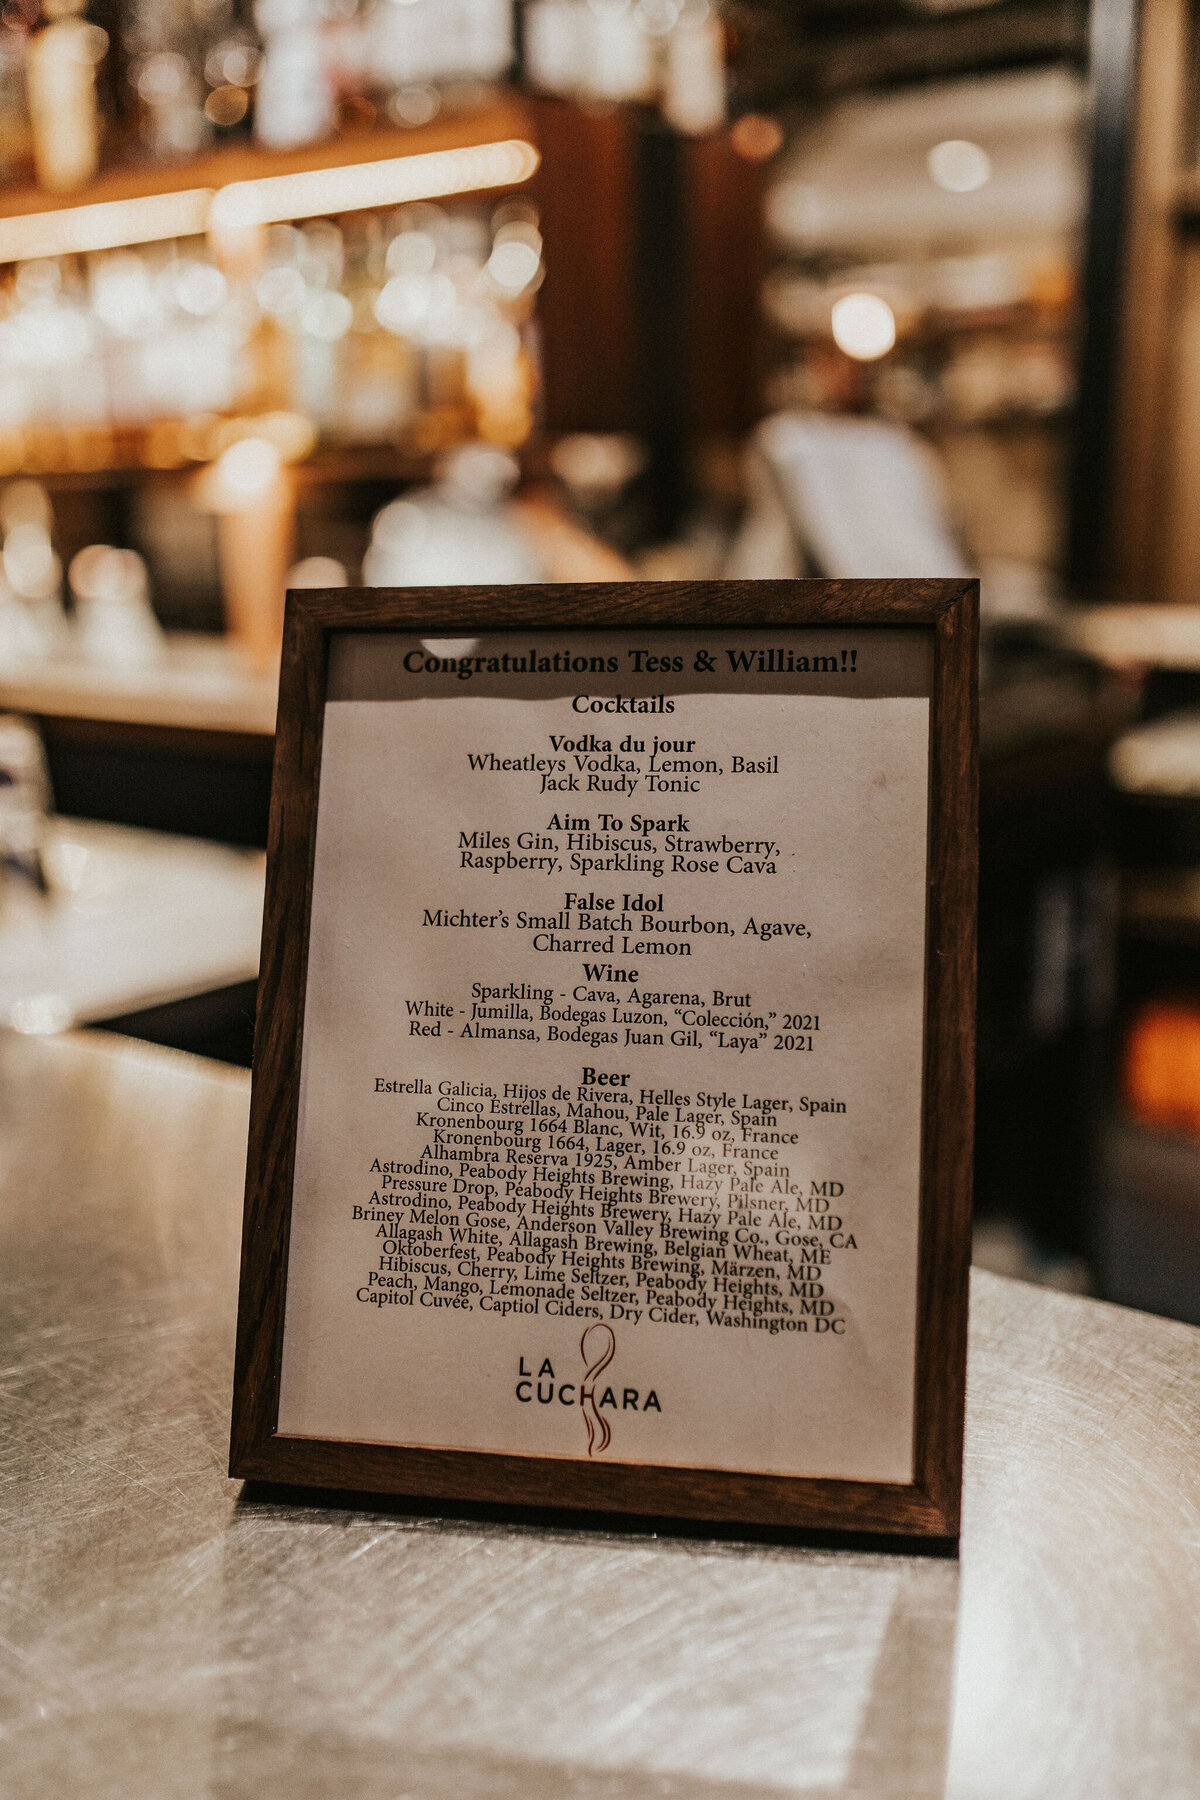 Congratulations Tess & William!!
Cocktails
Vodka du jour
Wheatleys Vodka, Lemon, Basil
Jack Rudy Tonic
Aim To Spark
Miles Gin, Hibiscus, Strawberry,
Raspberry, Sparkling Rose Cava
False Idol
Michter's Small Batch Bourbon, Agave,
Charred Lemon
Wine
Sparkling - Cava, Agarena, Brut
White - Jumilla, Bodegas Luzon, "Colección," 2021
Red - Almansa, Bodegas Juan Gil, "Laya" 2021
Beer
Estrella Galicia, Hijos de Rivera, Helles Style Lager, Spain
Cinco Estrellas, Mahou, Pale Lager, Spain
Kronenbourg 1664 Blanc, Wit, 16.9 oz, France
Kronenbourg 1664, Lager, 16.9 oz, France
Alhambra Reserva 1925, Amber Lager, Spain
Astrodino, Peabody Heights Brewing, Hazy Pale Ale, MD
Pressure Drop, Peabody Heights Brewery, Pilsner, MD
Astrodino, Peabody Heights Brewery, Hazy Pale Ale, MD
Briney Melon Gose, Anderson Valley Brewing Co., Gose, CA
Allagash White, Allagash Brewing, Belgian Wheat, ME
Oktoberfest, Peabody Heights Brewing, Märzen, MD
Hibiscus, Cherry, Lime Seltzer, Peabody Heights, MD
Peach, Mango, Lemonade Seltzer, Peabody Heights, MD
Capitol Cuvée, Captiol Ciders, Dry Cider, Washington DC
LA
CUCHARA